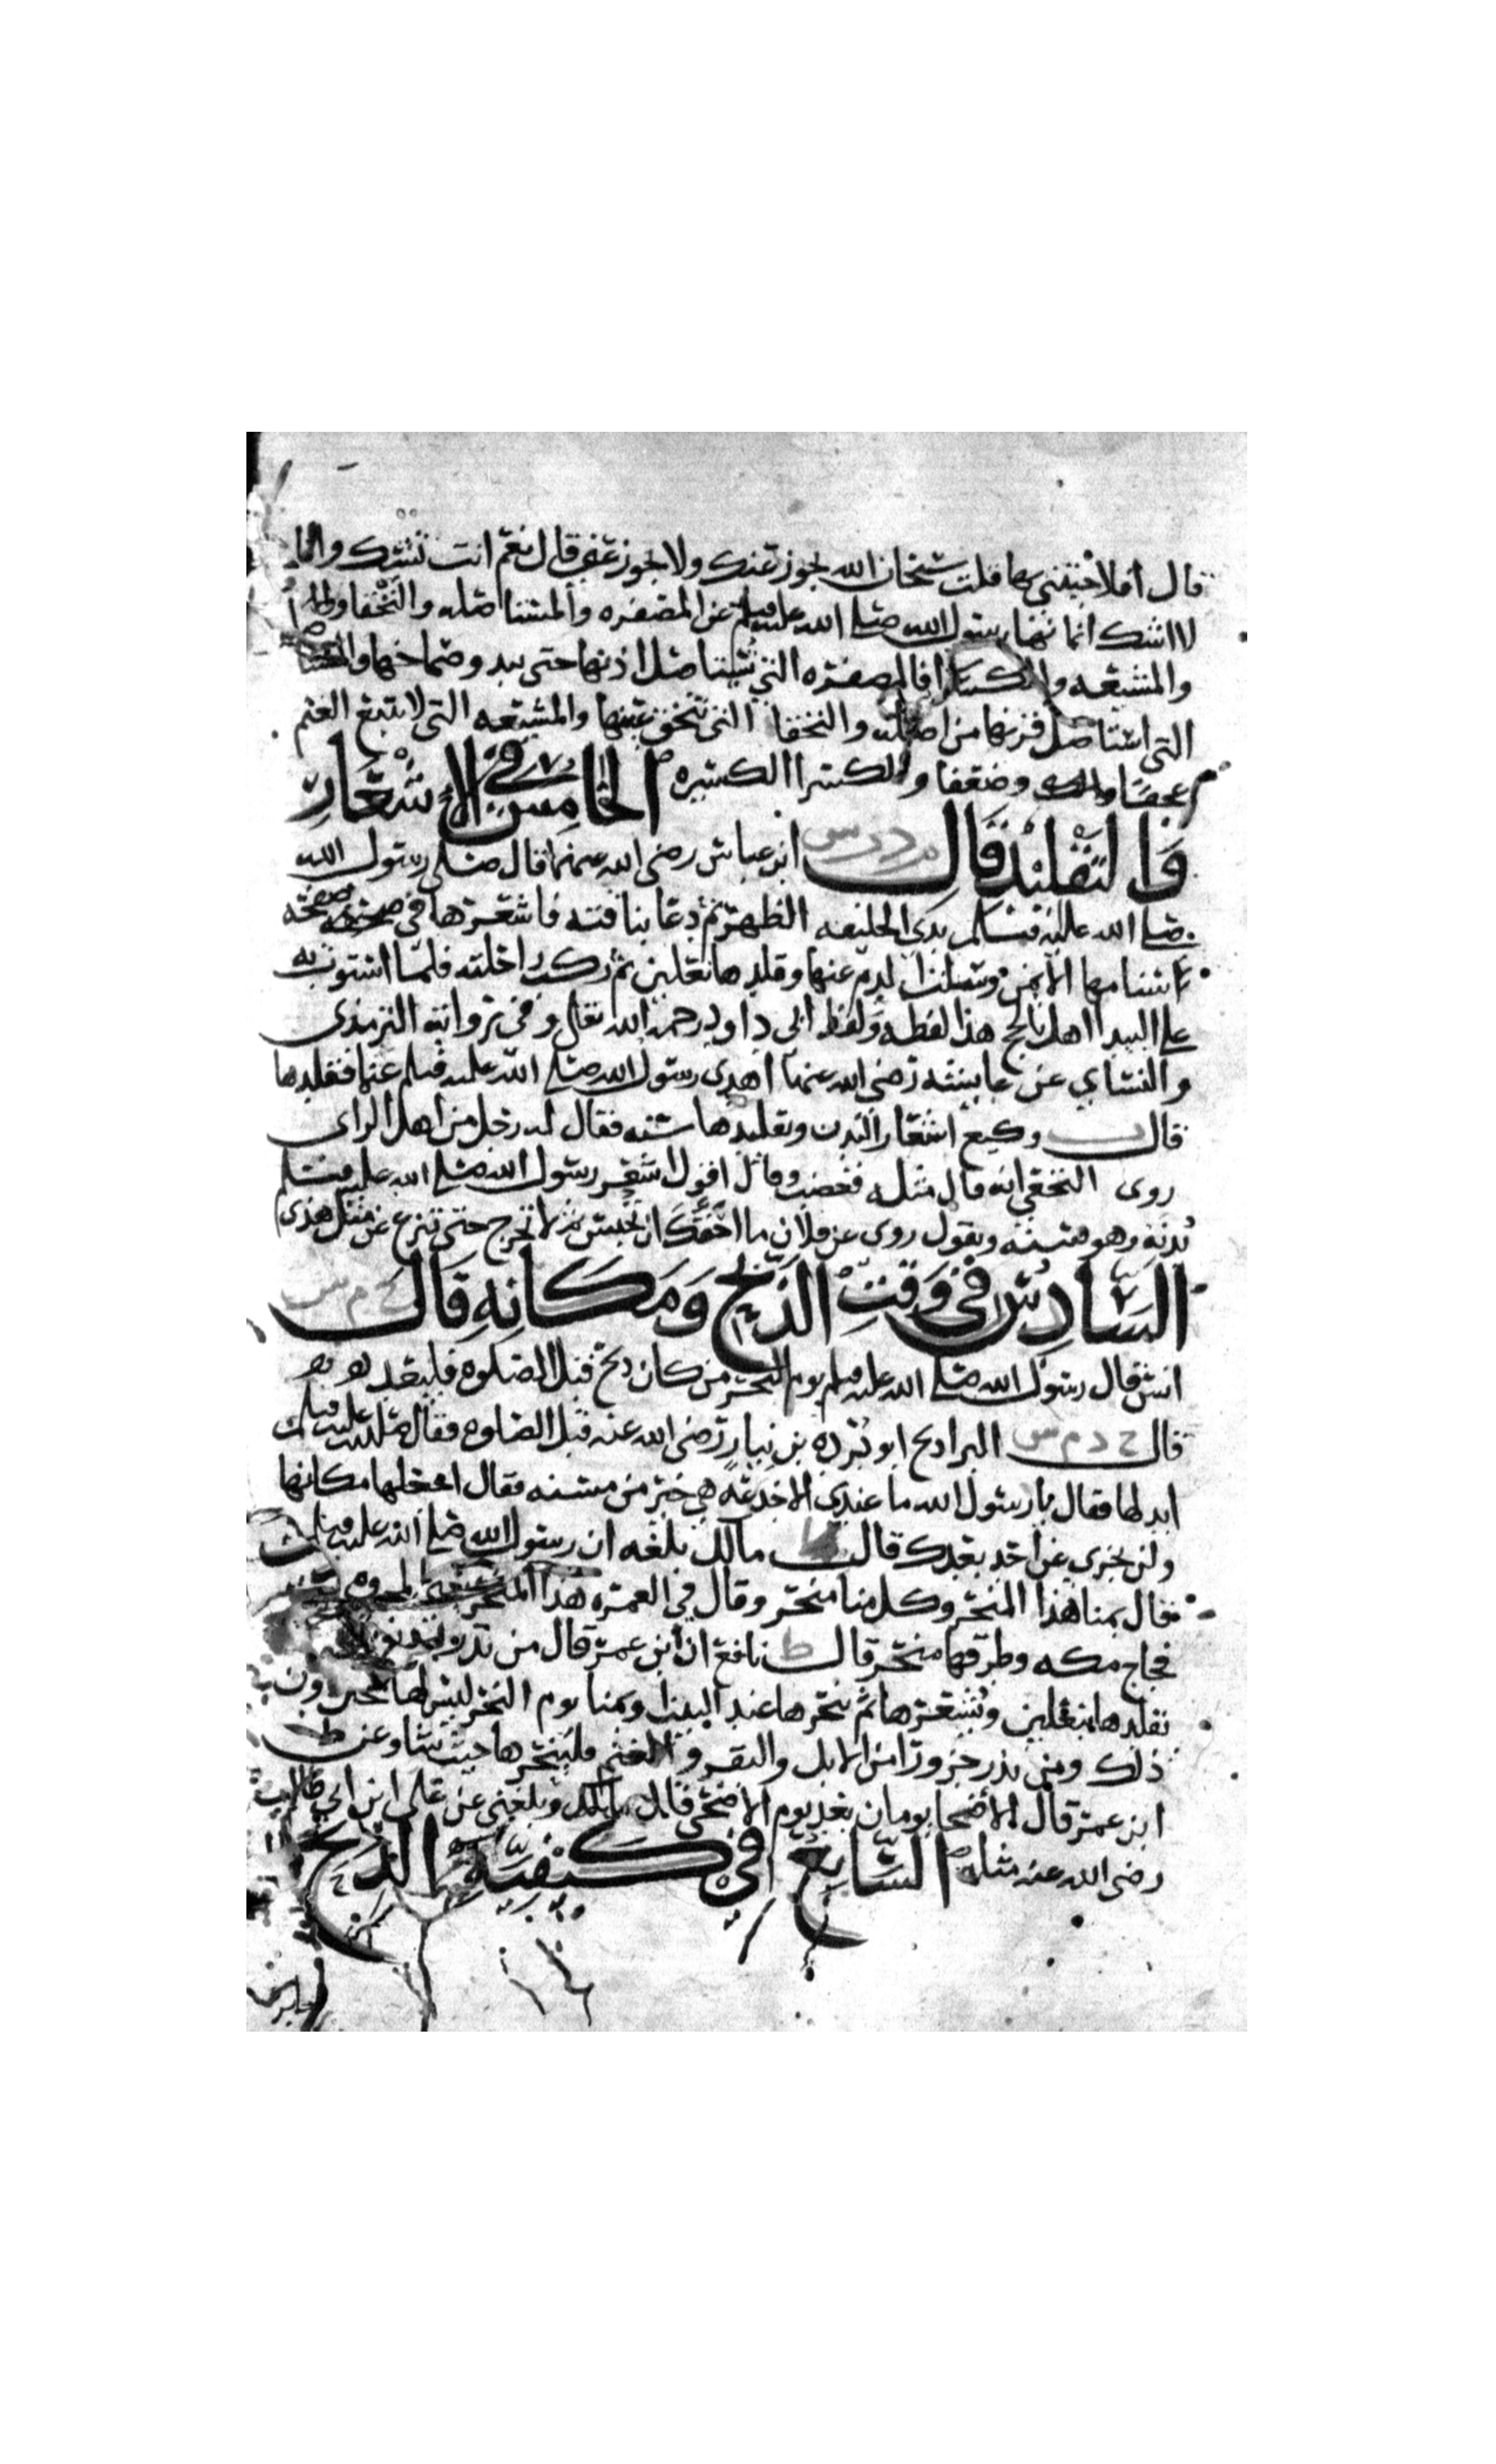 قال افلا جيتني بها قلت سبحان الله يجوز عنك ولا يجوز عني قال نعم انت تشك وانا
لا اشك انما نها رسول الله صلى الله عليه وسلم عن المصفره والمستاصله والبخقا
والمشيعه والكسرا فالمصفره التي تستاصل اذنها حتى يبدو صماخها
التي استاصل قرنها من اصله والبخقا التي تبخق عينها والمشيعه التي لا تتبع الغنم
عجفا وضعفا والكسرا الكسيره الخامس في الإشعار
والتقليد قال م د ر س ابن عباس رضي الله عنهما قال صلى رسول الله
صلى الله عليه وسلم بذي الحليفه الظهر ثم دعا بناقته فاشعرها في صفحة
سنامها الايمن وسلت الدم عنها وقلدها نعلين ثم ركب راحلته فلما استوت به
على البيدا اهل بالحج هذا لفظه ولفظ ابي داود رحمه الله تعالى وفي رواية الترمذي
والنساي عن عايشه رضي الله عنها اهدى رسول الله صلى الله عليه وسلم غنما فقلدها
قال وكيع اشعار البدن وتقليدها سنه فقال له رجل من اهل الراي
روى النخعي انه قال مثله فغضب وقال اقول اشعر رسول الله صلى الله عليه وسلم
بدنه وهو سنه وتقول روى عن فلان ما احقك ان تحبس ثم لا تخرج حتى تنزع عن مثل هذى
السادس في وقت الذبح ومكانه قال خ م س
انس قال رسول الله صلى الله عليه وسلم يوم النحر من كان ذبح قبل الصلوه فليعد
قال خ د م س البرا ذبح ابو برده بن نيار رضي الله عنه قبل الصلوه فقال صلى الله عليه وسلم
ابدلها فقال يا رسول الله ما عندي الا جذعه هي خير من مسنه فقال اجعلها مكانها
ولن يجزي عن احد بعدك قال ط مالك بلغه ان رسول الله صلى الله عليه وسلم
قال بمنا هذا المنحر وكل منا منحر وقال في العمره هذا المنحر
فجاج مكه وطرقها منحر قال ط نافع ان ابن عمر قال من نذر
يقلدها نعلين ويشعرها ثم ينحرها عند البيت او بمنا يوم النحر ليس لها محل دون
ذلك ومن نذر جزورا من الابل والبقر والغنم فلينحرها حيث شا وعن ط
ابن عمر قال الاضحا يومان بعد يوم الاضحى قال مالك وبلغني عن علي ابن ابي طالب
رضي الله عنه مثله السابع في كيفية الذبح